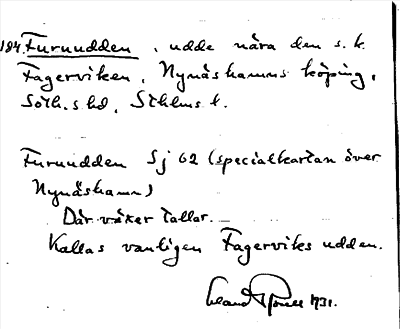 184. Furuudden, udde nära den s. k.
Fagerviken, Nynäshamns köping,
Soth. s hd, Sthlms l.
Furuudden Sj 62 (specialkartan över
Nynäshamn)
Där växer tallar.
Kallas vanligen Fagerviks udden.
1931.